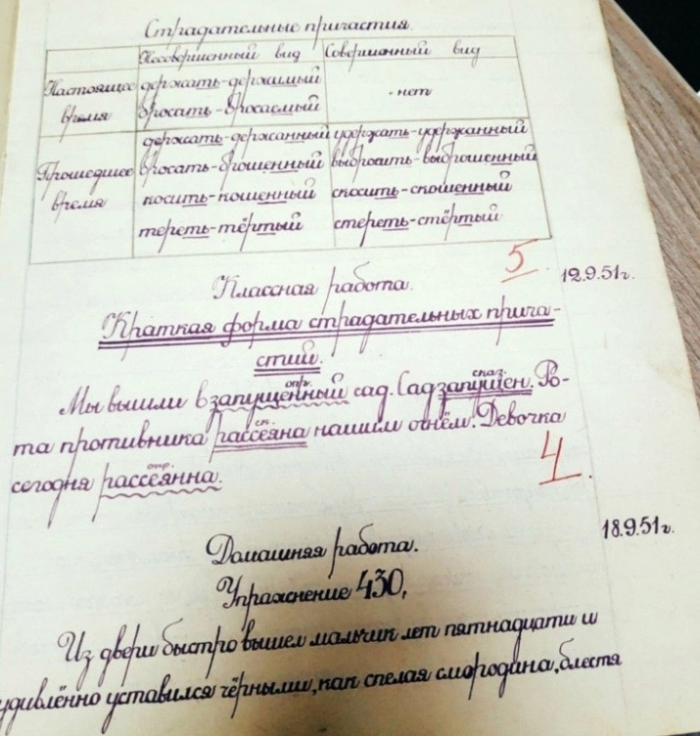 Страдательные причастия.
Несовершенный вид Совершенный вид
Настоящее держать-держимый
время бросать-бросаемый -нет
держать-держанный удержать-удержанный
Прошедшее бросать-брошенный выбросить-выброшенный
время косить-кошенный скосить-скошенный
тереть-тёртый стереть-стёртый
5
12.9.51г.
Классная работа.
Краткая форма страдательных прича-
стий.
опр. сказ.
Мы вышли в запущенный сад. Сад запущен. Ро-
ск.
та противника рассеяна нашим огнём. Девочка
опр.
сегодня рассеянна.
4
18.9.51г.
Домашняя работа.
Упражнение 430,
Из двери быстро вышел мальчик лет пятнадцати и
удивлённо уставился чёрными, как спелая смородина, блестя